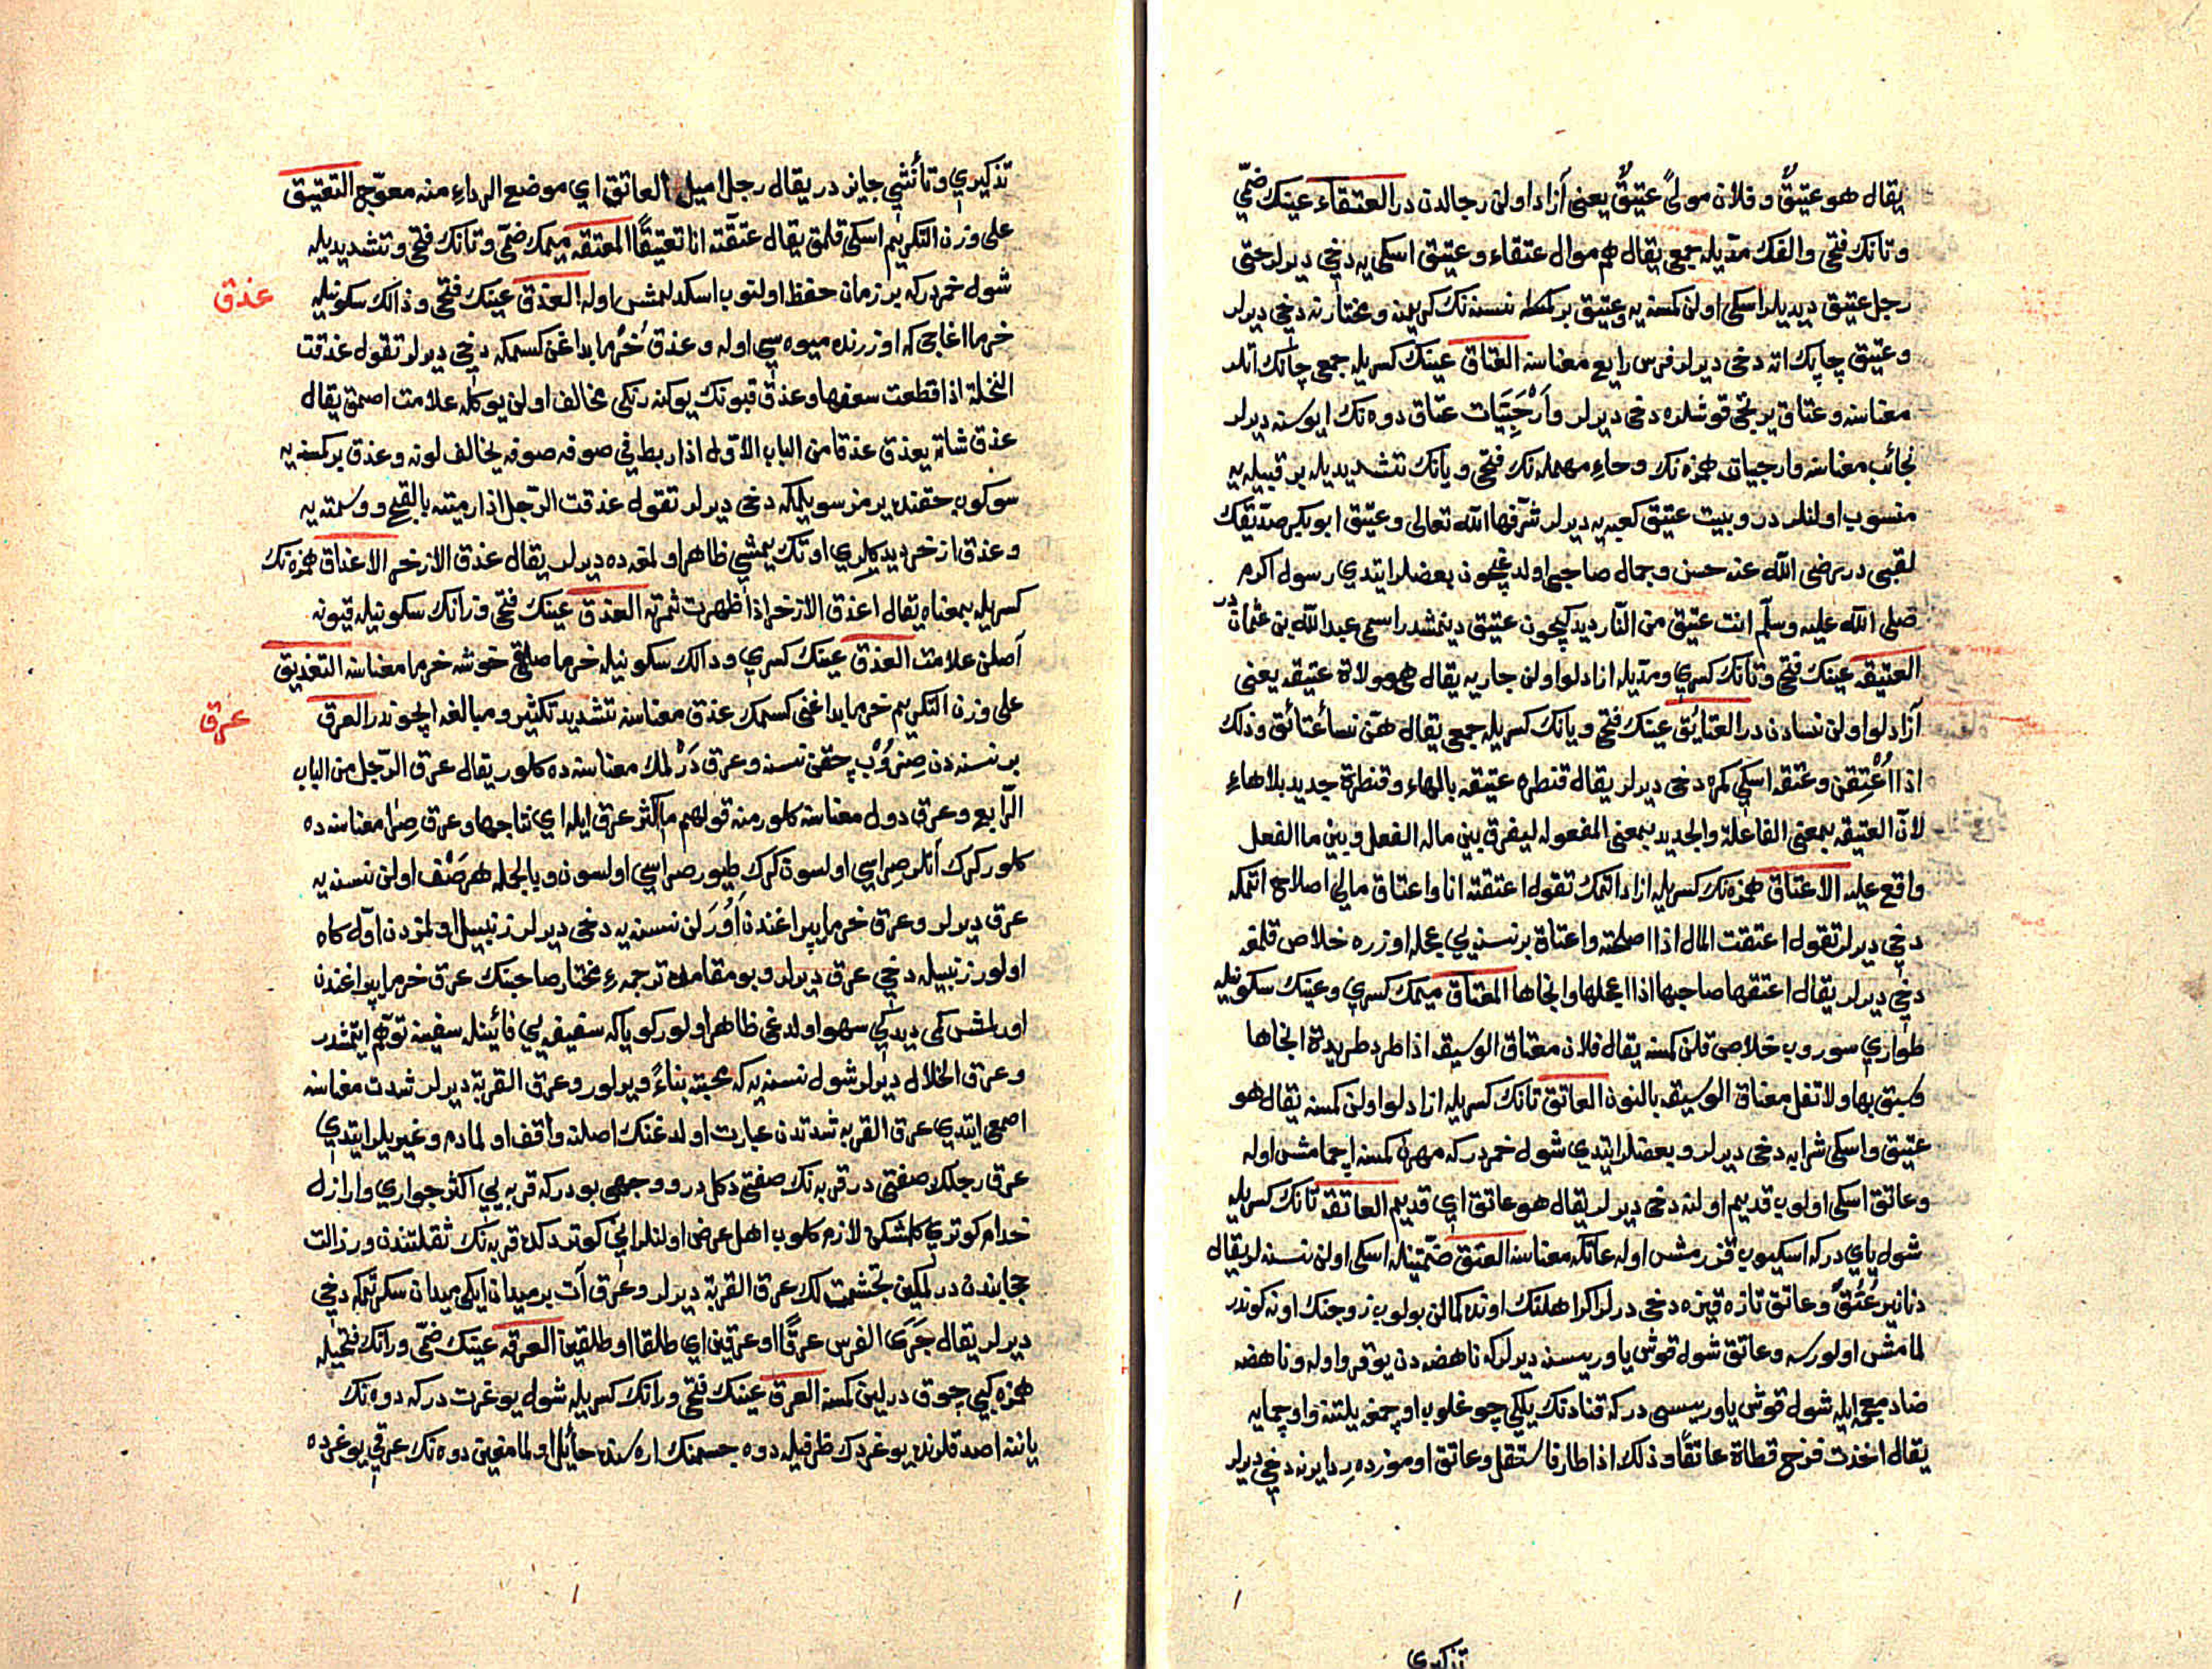 يقال هو عتيقٌ و فلان مولىً عتيقٌ يعنى آزاد اولن رجالدن در العتقاء عينك ضمّى
وتانك فتحى والفك مدّيله جمعى يقال هم موال عتقاء وعتيق اسكى يه دخى ديرلر حتى
رجل عتيق ديديلر اسكى اولن كمسنه يه وعتيق بر نسنه نك كريمنه ومختارنه دخى ديرلر
وعتيق چاپك اته دخى ديرلر فرس رايع معناسنه العتاق عينك كسريله جمعى چاپك اتلر
معناسنه وعتاق يرتجى قوشلره دخى ديرلر وأرْحَبِيَات عتاق دوه نك ايوسنه ديرلر
نجائب معناسنه وارحبيات همزه نك وحاء مهمله نك فتحى ويانك تشديديله بر قبيله يه
منسوب اولنلر در وبيت عتيق كعبه يه ديرلر شرّفها الله تعالى وعتيق ابو بكر صدّيقك
لقبى در رضى الله عنه حسن وجمال صاحبى اولدغيچون بعضلر ايتدي رسول اكرم
صلى الله عليه وسلّم انت عتيق من النّار ديدكيچون عتيق دينمشدر اسمى عبد الله بن عثمان در
العتيقه عينك فتحى وتانك كسري ومدّيله ازادلو اولن جاريه يقال هى مولاة عتيقه يعنى
آزادلو اولن نسادن در العتايُق عينك فتحى ويانك كسريله جمعى يقال هنّ نسأ عتائق وذلك
اذا اُعْتِقن وعتقه اسكى كمره دخى ديرلر يقال قنطره عتيقه بالهاء وقنطرة جديد بلا هاءِ
لانّ العتيقه بمعنى الفاعلة والجديد بمعنى المفعوله ليفرق بين ماله الفعل وبين ما الفعل
واقع عليه الاعتاق همزه نك كسريله ازاد اتمك تقول اعتقته انا واعتاق مالى اصلاح اتمكه
دخى ديرلر تقول اعتقت المال اذا اصلحته واعتاق بر نسنه يى عجله اوزره خلاص قلمغه
دخى ديرلر يقال اعتقها صاحبها اذا اعجلها وانجاها المعتاق ميمك كسري وعينك سكونيله
طواري سوروب خلاص قلن كمسنه يقال فلان معتاق الوسيقه اذا طرد طريدة انجاها
وسبق بها ولا تقل معناق الوسيقه بالنون العاتق تانك كسريله ازادلو اولن كمسنه يقال هو
عتيق واسكى شرابه دخى ديرلر وبعضلر ايتدي شول خمردر كه مهرن كمسنه اچمامش اوله
وعاتق اسكى اولوب قديم اولنه دخى ديرلر يقال هو عاتق اي قديم العاتقة تانك كسريله
شول ياي در كه اسكيوب قزرمش اوله عاتكه معناسنه العتق ضمّتينله اسكى اولن نسنه لر يقال
دنانير عُتُقٌ وعاتق تازه قيزه دخى ديرلر اكر اهلنك اونده كمالن بولوب زوجنك اونه كوندر
لمامش اولورسه وعاتق شول قوش ياوريسنه ديرلر كه ناهضه دن يوقرو اوله وناهضه
ضاد معجمه ايله شول قوش ياوريسى در كه قنادنك يلكى چوغلوب اوچمغه يلتنه واوچمايه
يقال اخذت فرخ قطاة عاتقاً وذلك اذا طار فاستقل وعاتق اوموزده رِدا يرنه دخى ديرلر
تذكيري
تذكيري وتأنثي جايز در يقال رجل اميل العاتق اي موضع الرداءِ منه معوّج التعتيق
على وزن التكريم اسكى قلمق يقال عتقّته انا تعتيقًا المعتقه ميمك ضمّى وتانك فتحى وتشديديله
شول خمردر كه بر زمان حفظ اولنوب اسكدلمش اوله العذق عينك فتحى وذالك سكونيله
عذق
خرما اغاجى كه اوزرنده ميوه سي اوله وعذق خُرما بداغن كسمكه دخى ديرلر تقول عذقت
النخلة اذا قطعت سعفها وعذق قيونك يوكنه رنكى مخالف اولن يوكله علامت اصمق يقال
عذق شاته يعذق عذقا من الباب الاوّل اذا ربط في صوفه صوفه يخالف لونه وعذق بر كمسنه يه
سوكوب حقنده يرمز سويلمكه دخى ديرلر تقول عذقت الرّجل اذا رميته بالقبح ووسمته به
وعذق اذخر ديدكلري اوتك يمشي ظاهر اولمغه ده ديرلر يقال عذق الاذخر الاعذاق همزه نك
كسريله بمعناه يقال اعذق الاذخر اذا ظهرت ثمرته العذق عينك فتحى وزانك سكونيله قيونه
آصلن علامت العذق عينك كسري ودالك سكونيله خرما صلقمى خوشه خرما معناسنه التعذيق
على وزن التكريم خرما بداغنى كسمك عذق معناسنه تشديد تكثير ومبالغه ايچوندر العرق
عرق
بر نسنه دن صِزوُبْ چقن نسنه وعرق دَرْلمك معناسنه ده كلور يقال عرق الرّجل من الباب
الرّابع وعرق دول معناسنه كلور منه قولهم ما اكثر عرق ايله اي نتاجها وعرق صِرا معناسنه ده
كلور كرك آتلر صِراسي اولسون كرك طيور صراسي اولسون وبالجمله هر صَنْف اولن نسنه يه
عرق ديرلر وعرق خرما يپراغندن اُوُرَلن نسنه يه دخى ديرلر زنبيل اولمزدن اوّل كاه
اولور زنبيله دخي عرق ديرلر وبو مقامده ترجمهءِ مختار صاحبنك عرق خرما يپراغندن
اورلمش كى ديدكى سهو اولدغى ظاهر اولور كويا كه سفيفه يي فائيله سفينه توهّم ايتمشدر
وعرق الخلال ديرلر شول نسنه يه كه محبته بناءً ويرلور وعرق القربة ديرلر شدت معناسنه
اصمعى ايتدي عرق القربه شدتدن عبارت اولدغنك اصلنه واقف اولمادم وغيريلر ايتدي
عرق رجلك صفتى در قربه نك صفتى دكل در ووجهى بودر كه قربه يي اكثر جواري واراذل
خدام كوتري كلمشكن لازم كلوب اهل عرض اولنلر انى كوتردكده قربه نك ثقلتندن ورذالت
حجابندن درلمكين تجشمت لك عرق القربة ديرلر وعرق آت بر ميدان ايكى ميدان سكرتمكه دخى
ديرلر يقال جَرَى الفرس عرقًا او عرقين اي طلقا او طلقين العرقه عينك ضمّى ورانك فتحيله
همزه كبي چوق درلين كمسنه العرق عينك فتحى ورانك كسريله شول يوغرت در كه دوه نك
يانّه اصد قلرنده يوغردك ظرفيله دوه جسمنك اره سنده حائل اولمامغين دوه نك عرقي يوغرده